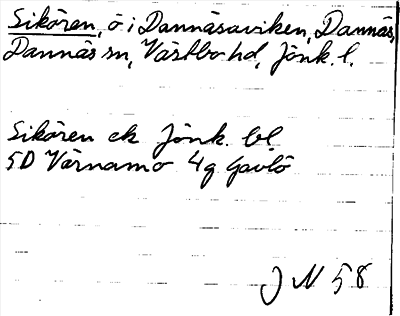 Sikören, ö i Dannäsaviken, Dannäs,
Dannäs sn, Västbo hd, Jönk. l.
Sikören ek Jönk. bl.
5D Värnamo 4g Gavlö
J N 58